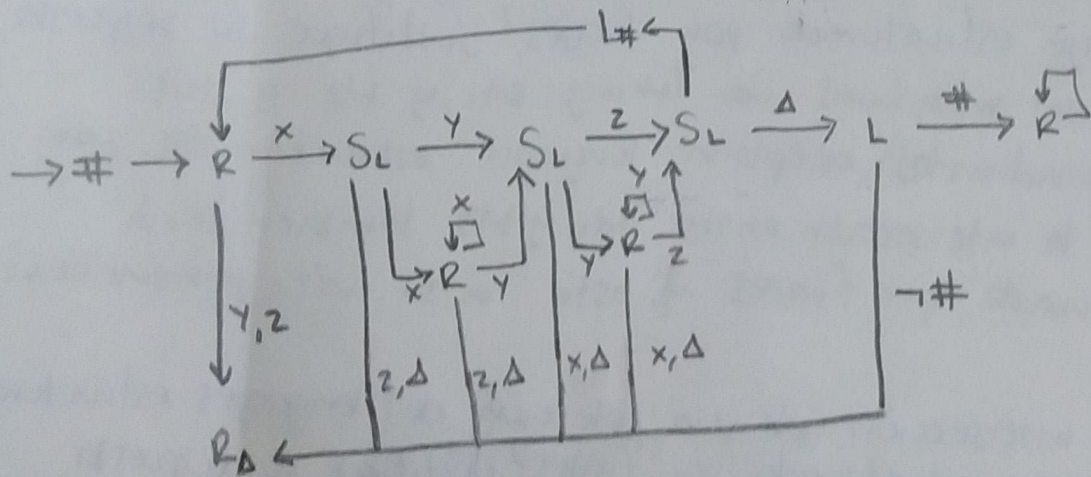 L#
→ # → R x→ SL Y→ SL Z→ SL Δ→ L #→ R
x Y
R R
x Y Y Z
Y,Z ¬#
Z,Δ Z,Δ x,Δ x,Δ
RΔ